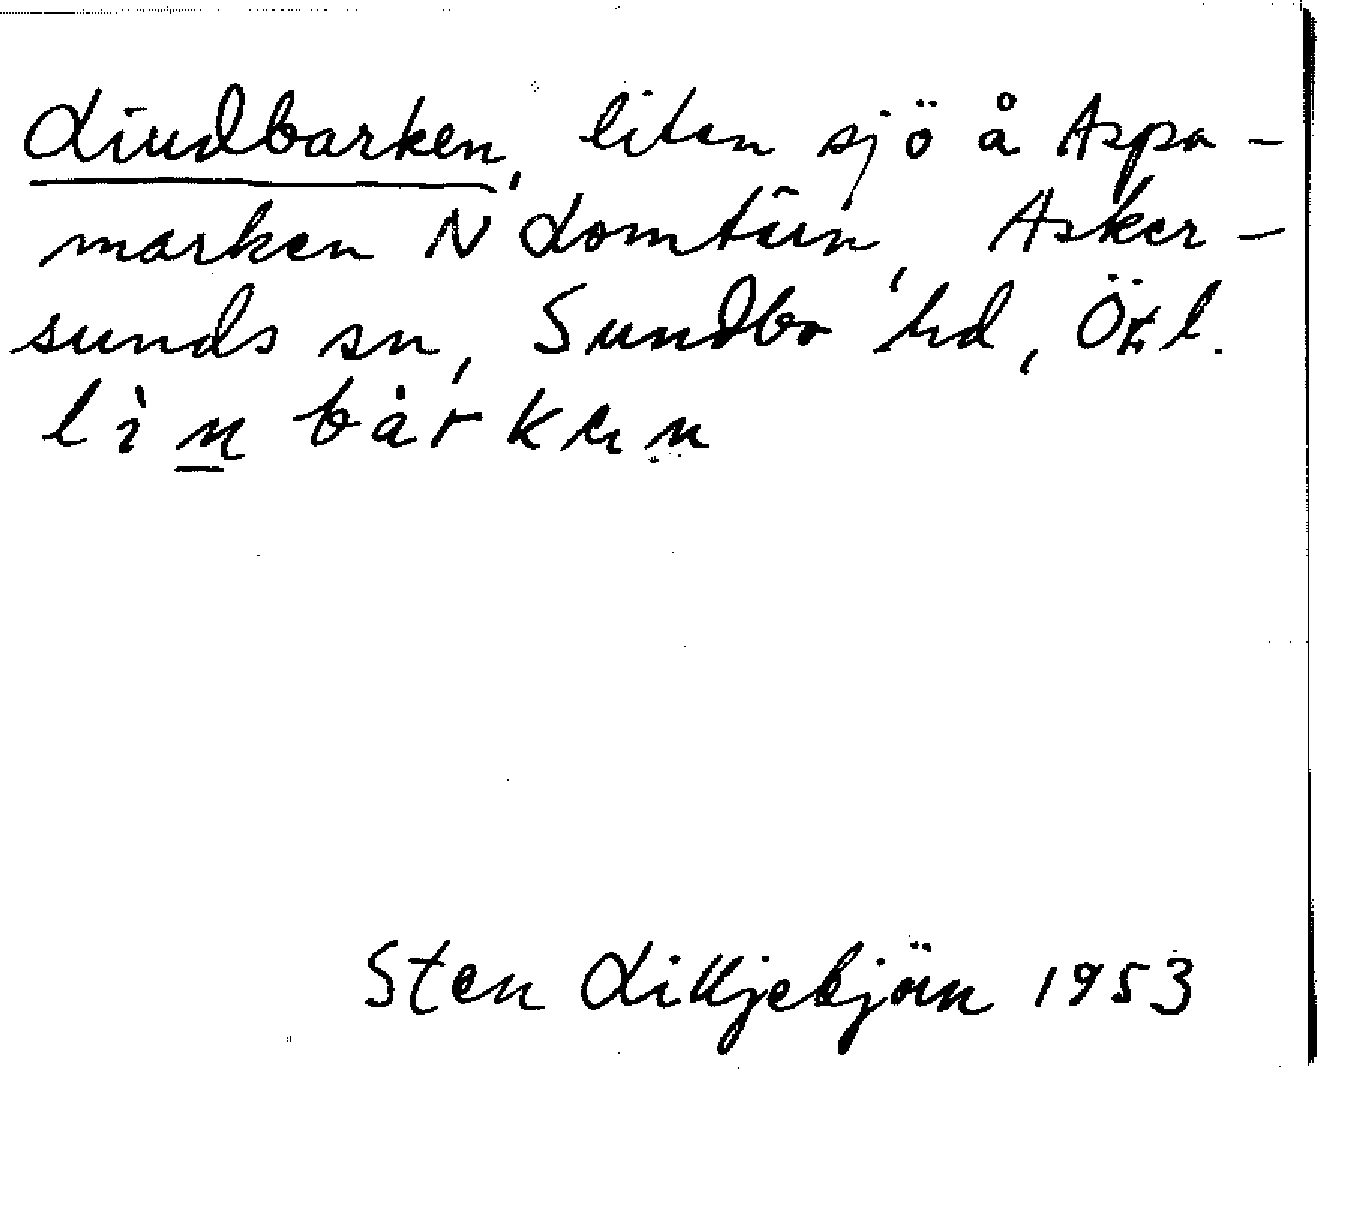 Lindbarken, liten sjö å Aspa-
marken N Lomtärn, Asker-
sunds sn, Sundbo hd, Ötl.
lìn bàrken
Sten Lilljebjörn 1953